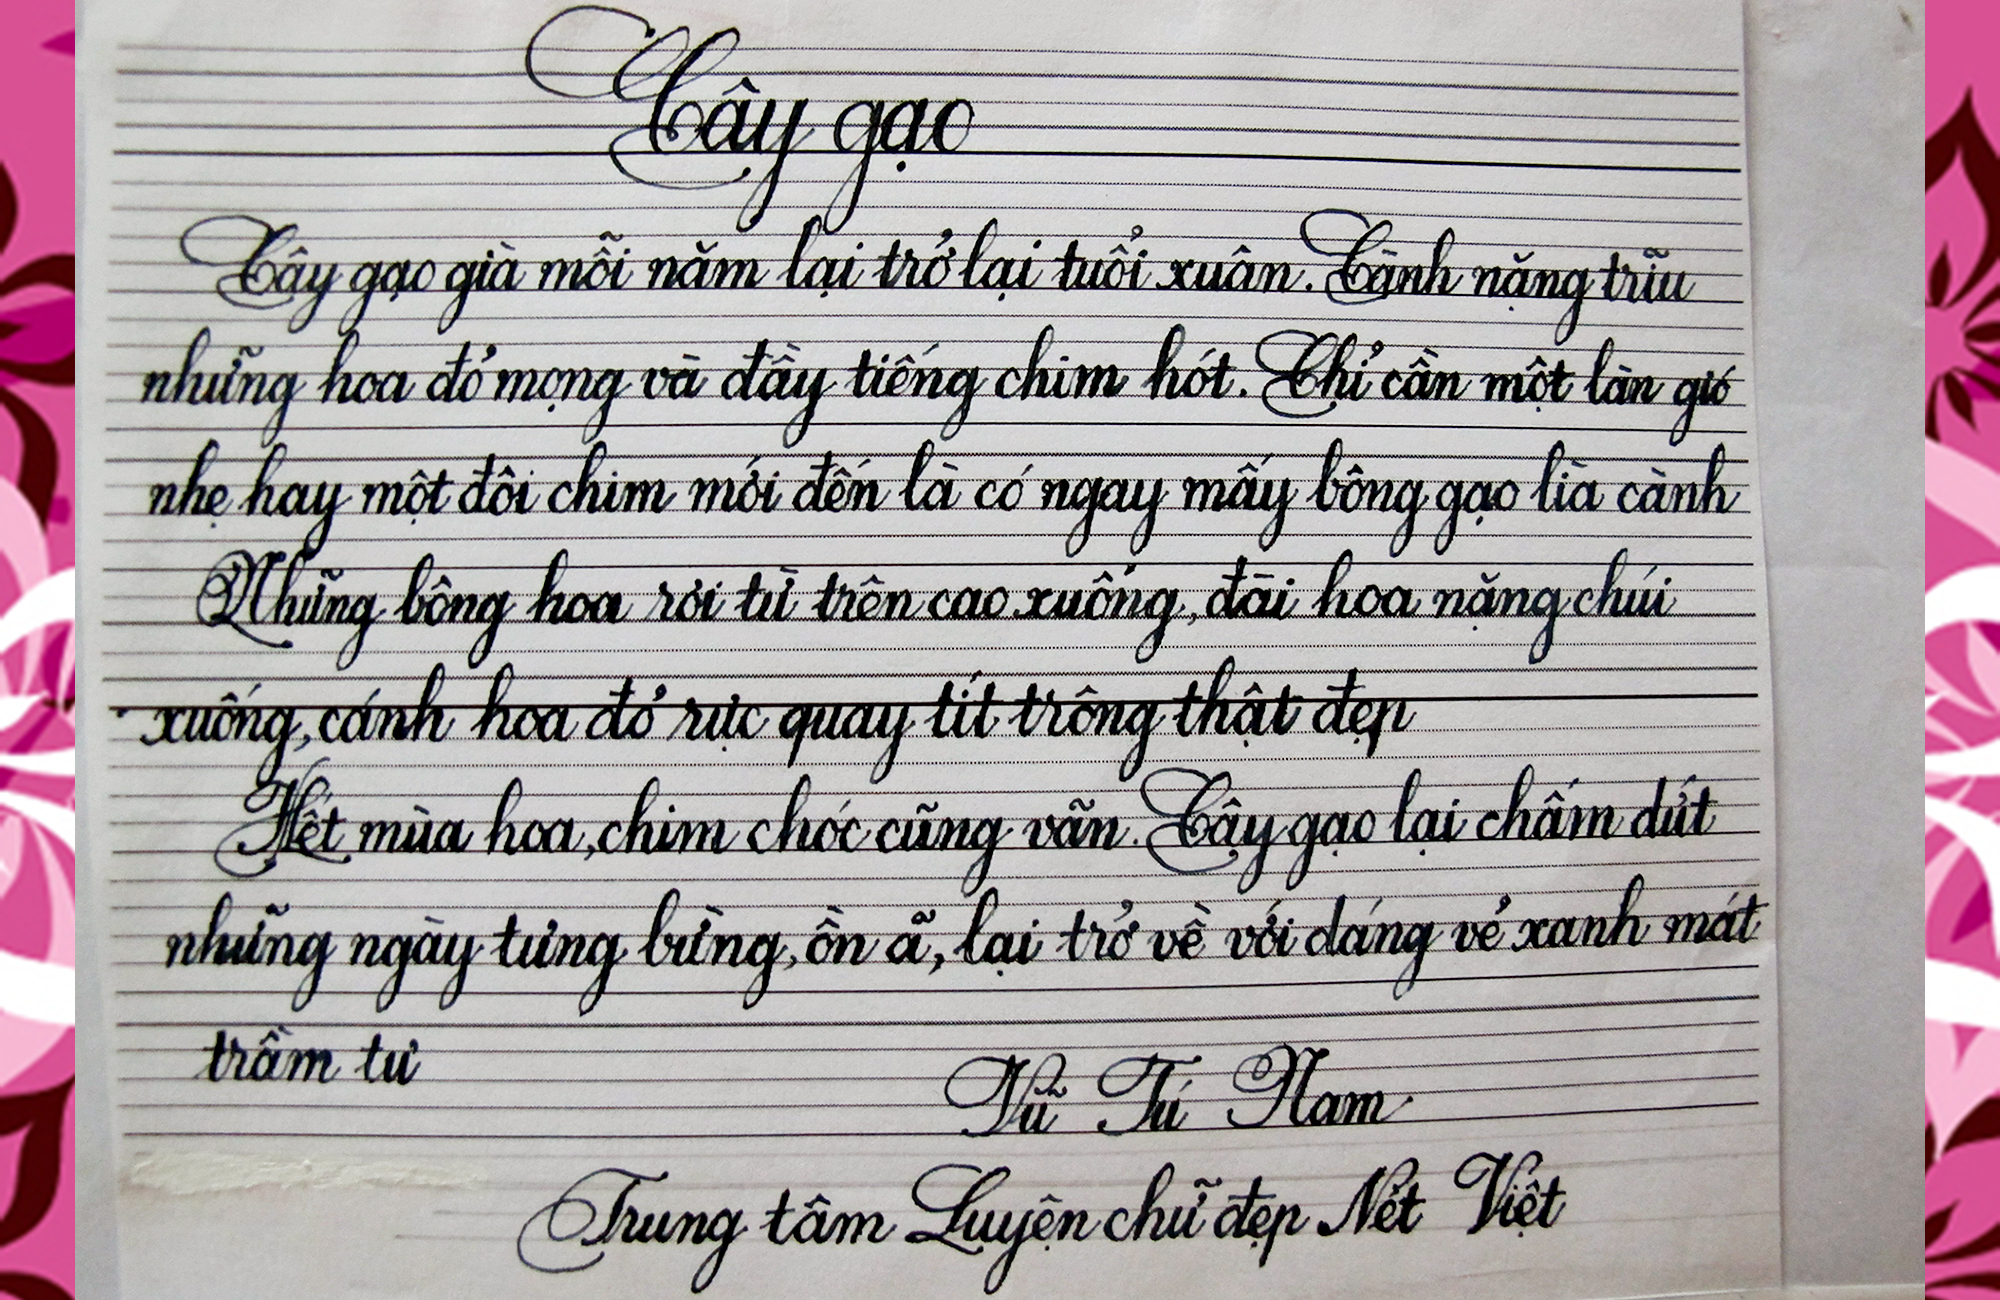 Cây gạo
Cây gạo già mỗi năm lại trở lại tuổi xuân. Cành nặng trĩu
những hoa đỏ mọng và đầy tiếng chim hót. Chỉ cần một làn gió
nhẹ hay một đôi chim mới đến là có ngay mấy bông gạo lìa cành
Những bông hoa rơi từ trên cao xuống, đài hoa nặng chúi
xuống, cánh hoa đỏ rực quay tít trông thật đẹp
Hết mùa hoa, chim chóc cũng vãn. Cây gạo lại chấm dứt
những ngày tưng bừng, ồn ã, lại trở về với dáng vẻ xanh mát
trầm tư
Vũ Tú Nam
Trung tâm Luyện chữ đẹp Nét Việt